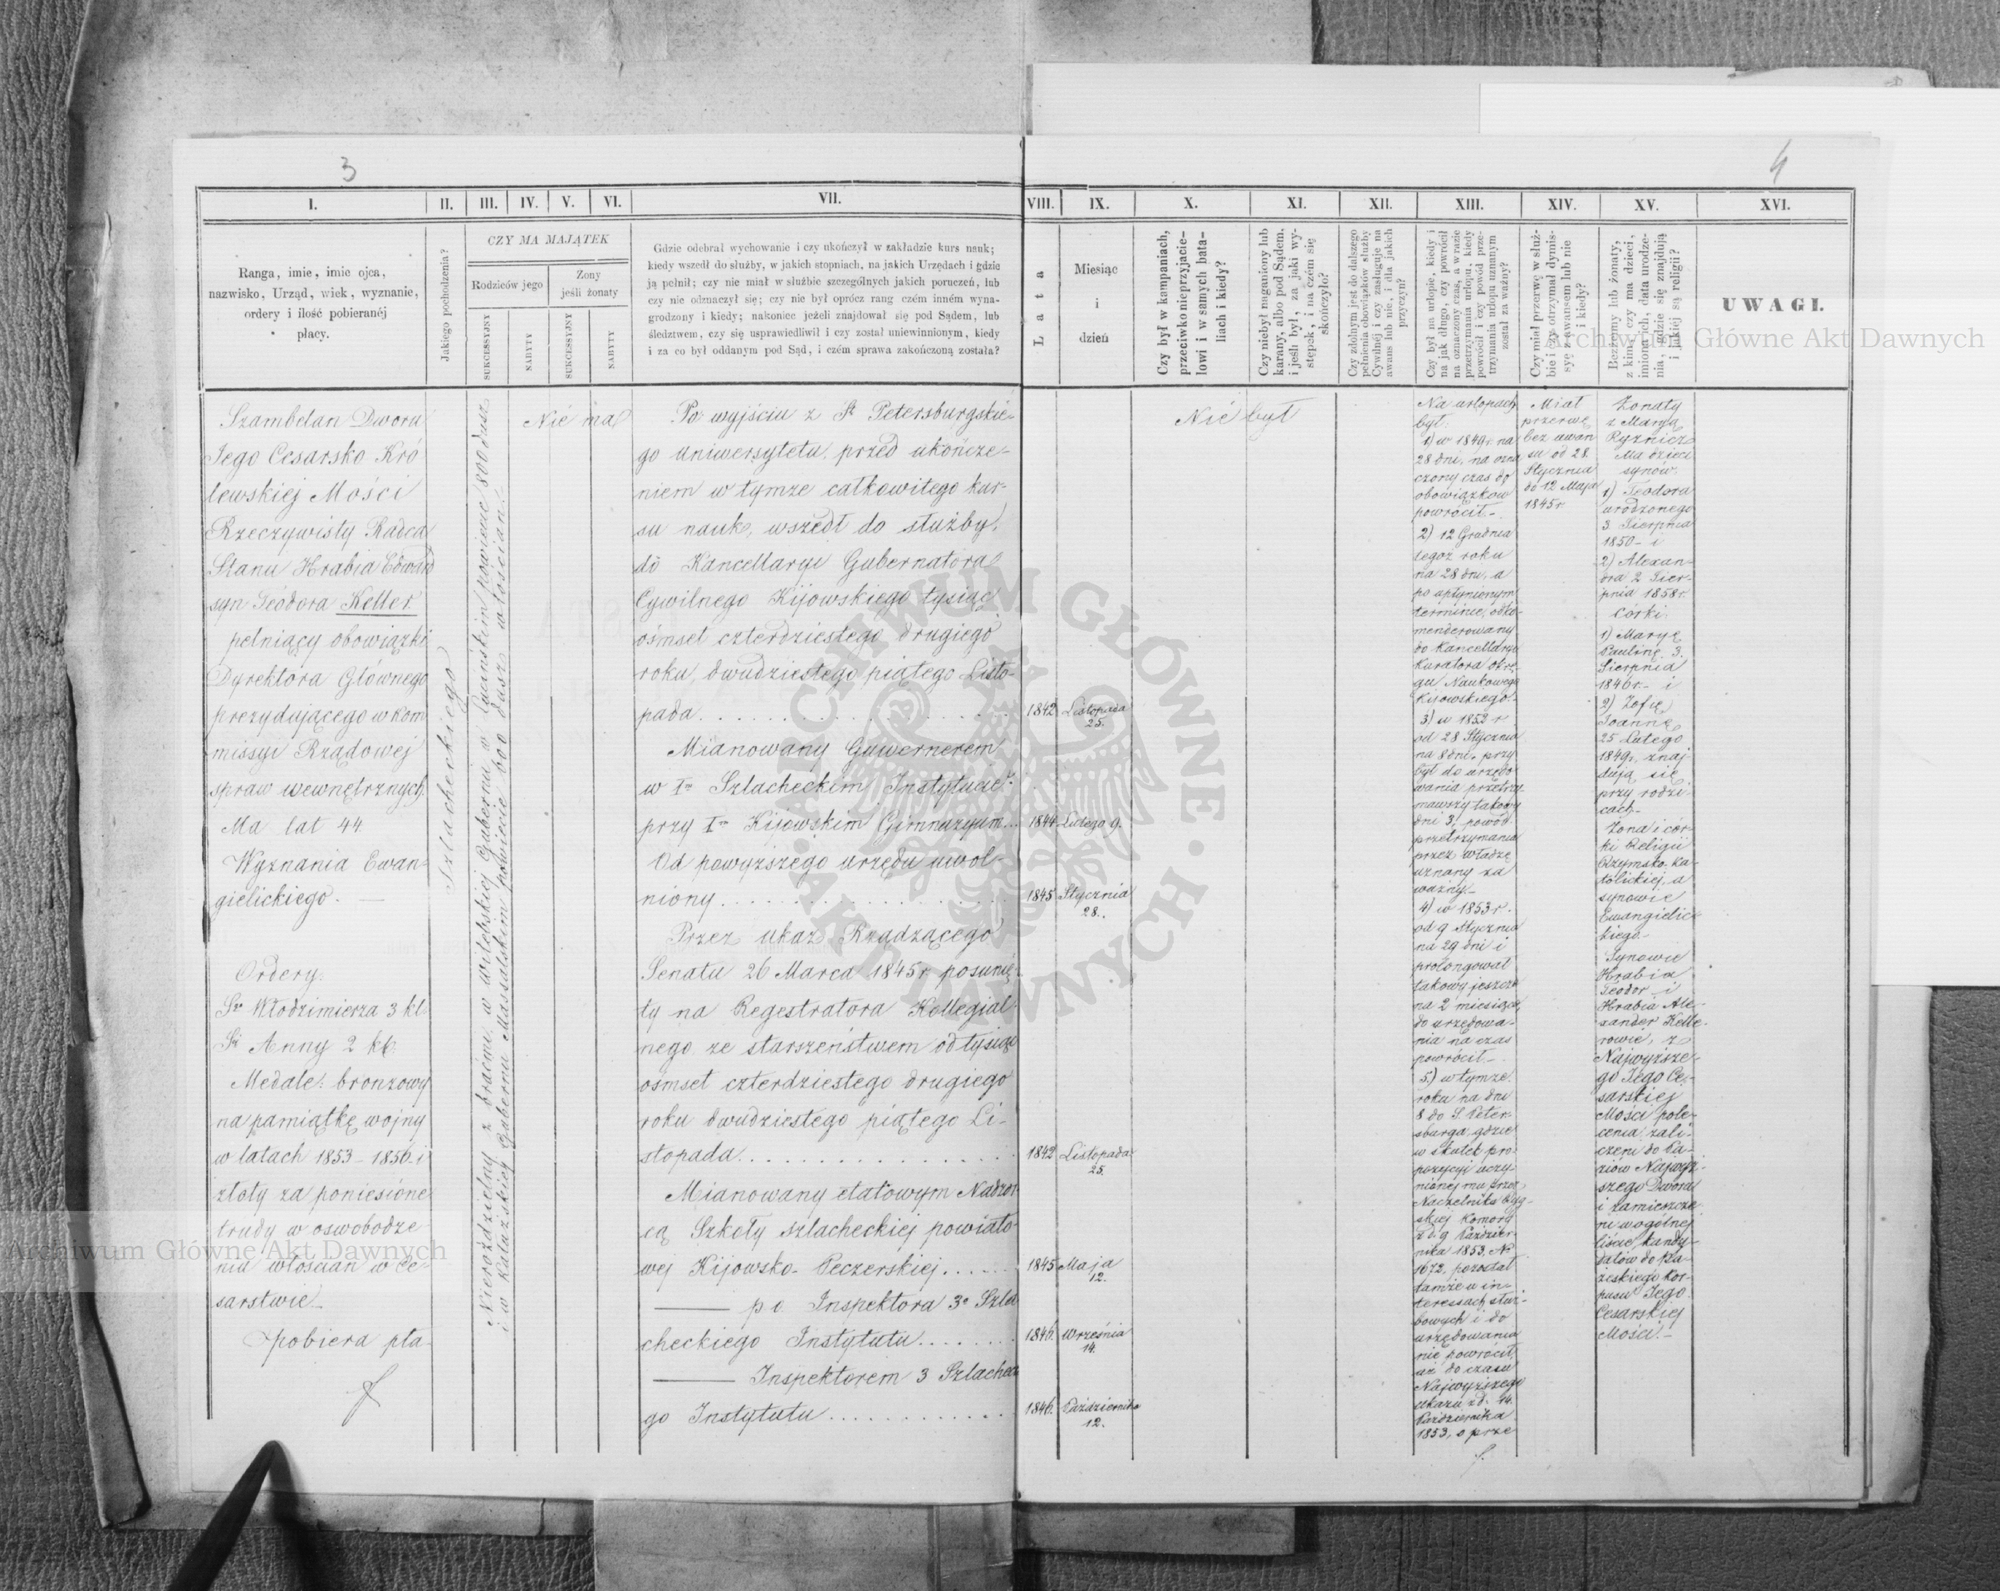 3
4
I.
II.
III.
IV.
V.
VI.
VII.
VIII.
IX.
X.
XI.
XII.
XIII.
XIV.
XV.
XVI.
Ranga, imie, imie ojca,
nazwisko, Urząd, wiek, wyznanie,
ordery i ilość pobieranéj
płacy.
Jakiego pochodzenia?
CZY MA MAJĄTEK
Rodziców jego
Żony
jeśli żonaty
SUKCESSYJNY
NABYTY
SUKCESSYJNY
NABYTY
Gdzie odebrał wychowanie i czy ukończył w zakładzie kurs nauk;
kiedy wszedł do służby, w jakich stopniach, na jakich Urzędach i gdzie
ją pełnił; czy nie miał w służbie szczególnych jakich poruczeń, lub
czy nie odznaczył się; czy nie był oprócz rang czém inném wyna-
grodzony i kiedy; nakoniec jeżeli znajdował się pod Sądem, lub
śledztwem, czy się usprawiedliwił i czy został uniewinnionym, kiedy
i za co był oddanym pod Sąd, i czém sprawa zakończoną została?
Lata
Miesiąc
i
dzień
Czy był w kampaniach,
przeciwko nieprzyjacie-
lowi i w samych bata-
liach i kiedy?
Czy niebył naganiony lub
karany, albo pod Sądem,
i jeśli był, za jaki wy-
stępek, i na czém się
skończyło?
Czy zdolnym jest do dalszego
pełnienia obowiązków służby
Cywilnéj i czy zasługuje na
awans lub nie, i dla jakich
przyczyn?
Czy był na urlopie, kiedy i
na jak długo, czy powrócił
na oznaczony czas, a w razie
przetrzymania urlopu, kiedy
powrócił i czy powód prze-
trzymania urlopu uznanym
został za ważny?
Czy miał przerwę w służ-
bie i czy otrzymał dymis-
syę z awansem lub nie
i kiedy?
Bezżenny lub żonaty,
z kim, czy ma dzieci,
imiona ich, data urodze-
nia, gdzie się znajdują
i jakiéj są religii?
UWAGI.
Szambelan Dworu
Jego Cesarsko Kró
lewskiej Mości
Rzeczywisty Radca
Stanu Hrabia Edward
syn Teodora Keller
pełniący obowiązki
Dyrektora Głównego
prezydującego w Kom
missyi Rządowej
spraw wewnętrznych.
Ma lat 44.
Wyznania Ewan-
gielickiego. —
Ordery:
Sgo Włodzimierza 3 kl.
St Anny 2 kl.
Medale: bronzowy
na pamiątkę wojny
w latach 1853–1856 i
złoty za poniesione
trudy w oswobodze-
niu włościan w Ce-
sarstwie –
pobiera pła-
Szlacheckiego
Nierozdzielny z braćmi w Witebskiej Gubernii w Lucińskim powiecie 800 dusz
i w Kałużskiej Gubernii Massalskim powiecie 600 dusz włościan
Nie ma
Po wyjściu z St Petersburgskie-
go uniwersytetu przed ukończe-
niem w tymże całkowitego kur-
su nauk, wszedł do służby
do Kancellaryi Gubernatora
Cywilnego Kijowskiego tysiąc
ośmset czterdziestego drugiego
roku, dwudziestego piątego Listo-
pada . . . . . . . . . . . . . 1842 Listopada 25.
Mianowany Guwernerem
w Im Szlacheckim Instytucie
przy Im Kijowskim Gimnazyum . . 1844 Lutego 9.
Od powyższego urzędu uwol-
niony . . . . . . . . . . . . 1845 Stycznia 28.
Przez ukaz Rządzącego
Senatu 26 Marca 1845 r. posunię-
ty na Regestratora Kollegial-
nego ze starszeństwem od tysiąc
ośmset czterdziestego drugiego
roku dwudziestego piątego Li-
stopada . . . . . . . . . . . 1842 Listopada 25.
Mianowany etatowym Nadzor-
cą Szkoły szlacheckiej powiato-
wej Kijowsko-Peczerskiej . . . . 1845 Maja 12.
—— p o Inspektora 3o Szla
checkiego Instytutu . . . . . . 1846. Września 14.
—— Inspektorem 3 Szlachec
go Instytutu . . . . . . . . . 1846. Października 12.
Nie był
Na urlopach
był:
1) w 1849 r. na
28 dni, na ozna
czony czas do
obowiązków
powrócił. –
2) 12 Grudnia
tegoż roku
na 28 dni, a
po upłynionym
terminie, odko-
menderowany
do Kancellaryi
Kuratora okrę-
gu Naukowego
Kijowskiego.
3) w 1852 r
od 28 Stycznia
na 8 dni, przy
był do urzędo
wania przetrzy
mawszy takowy
dni 3, powód
przetrzymania
przez władzę
uznany za
ważny –
4) w 1853 r.
od 9 Stycznia
na 29 dni i
prolongował
takowy jeszcze
na 2 miesiące,
do urzędowa-
nia na czas
powrócił. –
5) w tymże
roku na dni
8 do S. Peter-
sburga, gdzie
w skutek pro-
pozycyi uczy-
nionej mu przez
Naczelnika Ryg-
skiej Komory
z d. 9 Paździer-
nika 1853. No
1672, pozostał
tamże w in-
teressach służ-
bowych i do
urzędowania
nie powrócił,
aż do czasu
Najwyższego
ukazu z d. 14.
Października
1853, o prze
Miał
przerwę
bez awan
su od 28
Stycznia
do 12 Maja
1845 r.
Żonaty
z Maryą
Ryznicz
Ma dzieci
synów:
1) Teodora
urodzonego
3 Sierpnia
1850 – i
2) Alexan-
dra 2 Sier-
pnia 1858 r.
Córki:
1) Maryę
Paulinę 3.
Sierpnia
1846 r. – i
2) Zofię
Joannę
25 Lutego
1849 r, znaj-
dują się
przy rodzi
cach –
Żona i cór-
ki Religii
Rzymsko-Ka-
tolickiej, a
synowie
Ewangielic-
kiego –
Synowie
Hrabia
Teodor i
Hrabia Ale-
xander Kelle-
rowie, z
Najwyższe-
go Jego Ce-
sarskiej
Mości pole-
cenia, zali-
czeni do Pa-
ziów Najwyż-
szego Dworu
i zamieszcze
ni w ogólnej
liście kandy-
datów do Pa-
ziskiego Kor-
pusu Jego
Cesarskiej
Mości. –
Archiwum Główne Akt Dawnych
Archiwum Główne Akt Dawnych
ARCHIWUM GŁÓWNE · AKT DAWNYCH ·